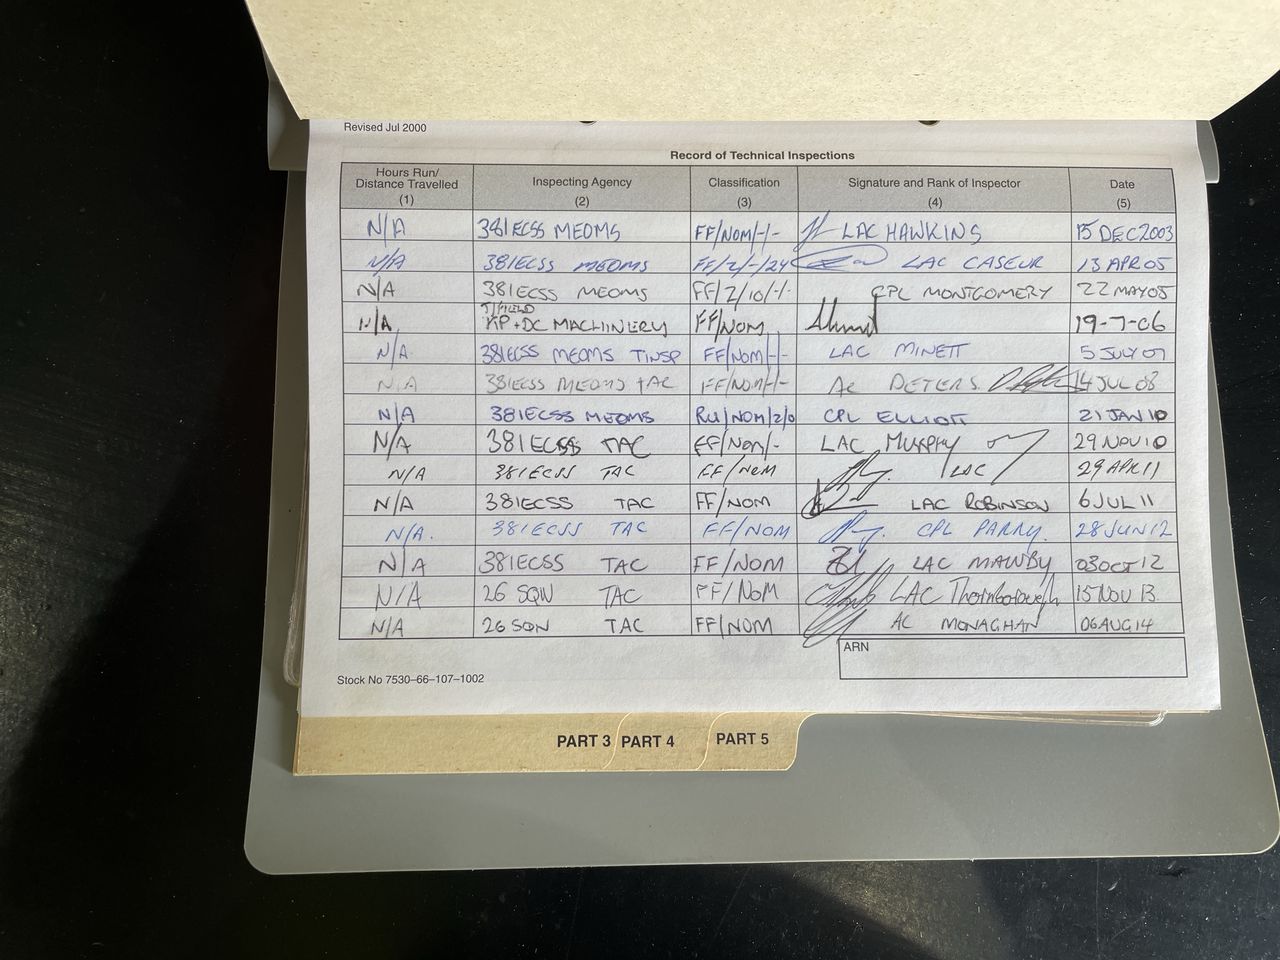 Revised Jul 2000
Record of Technical Inspections
Hours Run/ Distance Travelled (1) Inspecting Agency (2) Classification (3) Signature and Rank of Inspector (4) Date (5)
N/A 381ECSS MEOMS FF/NOM/-/- LAC HAWKINS 15 DEC 2003
N/A 381ECSS MEOMS FF/2/-/24 LAC CASEUR 13 APR 05
N/A 381ECSS MEOMS FF/2/10/-/- CPL MONTGOMERY 22 MAY 05
N/A KP+DC MACHINERY FF/NOM 19-7-06
N/A 381ECSS MEOMS TINSP FF/NOM/-/- LAC MINETT 5 JULY 07
N/A 381ECSS MEOMS TAC FF/NOM/-/- AC DETERS 14 JUL 08
N/A 381ECSS MEOMS RU/NOM/2/0 CPL ELLIOTT 21 JAN 10
N/A 381ECSS TAC FF/NOM/- LAC MURPHY 29 NOV 10
N/A 381ECSS TAC FF/NOM LAC 29 APR 11
N/A 381ECSS TAC FF/NOM LAC ROBINSON 6 JUL 11
N/A. 381ECSS TAC FF/NOM CPL PARRY. 28 JUN 12
N/A 381ECSS TAC FF/NOM LAC MAWBY 03 OCT 12
N/A 26 SQN TAC FF/NOM LAC Thornborough 15 NOV 13
N/A 26 SQN TAC FF/NOM AC MONAGHAN 06 AUG 14
ARN
Stock No 7530–66–107–1002
PART 3 PART 4 PART 5